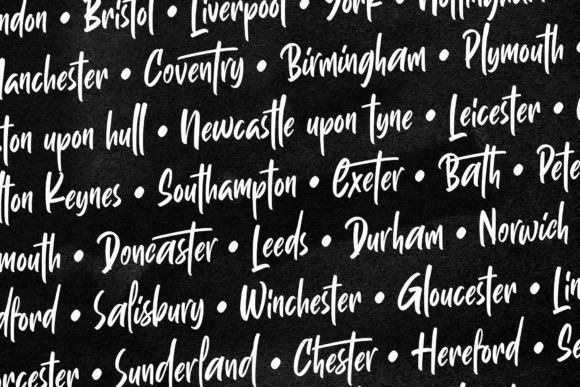 ndon • Bristol • Liverpool • York • Nottingham
Manchester • Coventry • Birmingham • Plymouth •
ston upon hull • Newcastle upon tyne • Leicester •
lton Keynes • Southampton • Exeter • Bath • Pete
mouth • Doncaster • Leeds • Durham • Norwich
dford • Salisbury • Winchester • Gloucester • Lin
orcester • Sunderland • Chester • Hereford • Se